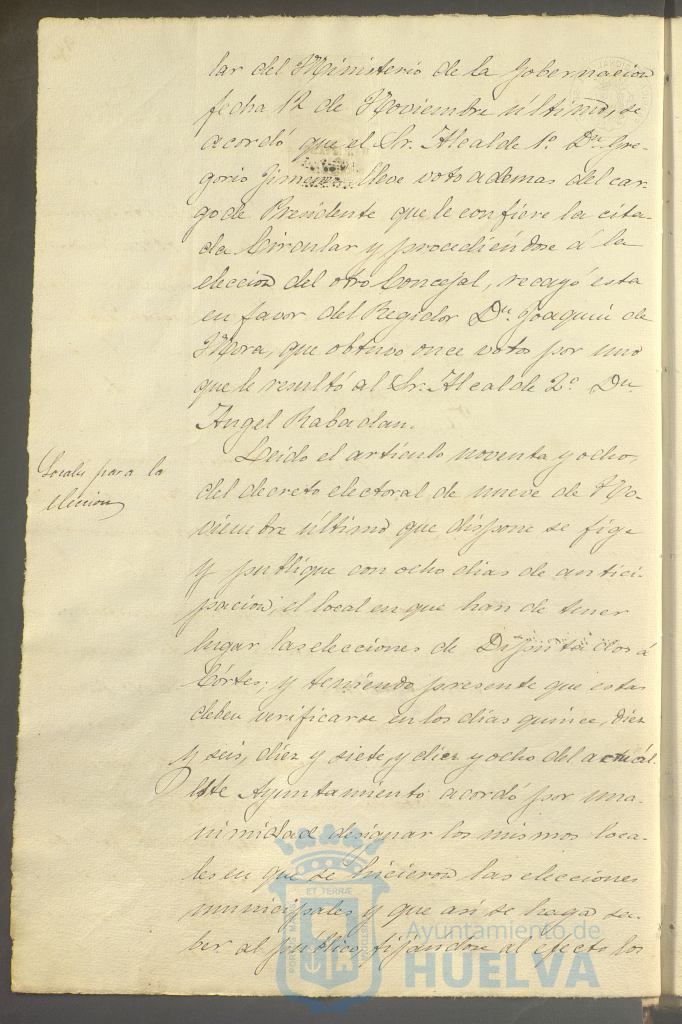 lar del Ministerio de la Gobernacion
fecha 12 de Noviembre último, se
acordó que el Sr. Alcalde 1º Dn. Gre-
gorio Jimenez lleve voto ademas del car-
go de Presidente que le confiere la cita-
da Circular y procediendose á la
eleccion del otro Concejal, recayó esta
en favor del Regidor Dn. Joaquin de
Mora, que obtuvo once votos por uno
que le resultó al Sr. Alcalde 2º Dn.
Angel Rabadan.
Locales para la
eleccion
Leido el artículo noventa y ocho,
del decreto electoral de nueve de No-
viembre último que dispone se fige
y publique con ocho dias de antici-
pacion, el local en que han de tener
lugar las elecciones de Diputados á
Córtes; y teniendo presente que estas
deben verificarse en los dias quince, diez
y seis, diez y siete, y diez y ocho del actual.
Este Ayuntamiento acordó por una-
nimidad designar los mismos loca-
les en que se hicieron las elecciones
municipales y que asi se haga sa-
ber al público, fijándose al efecto los
Ayuntamiento de
HUELVA
ET TERRÆ